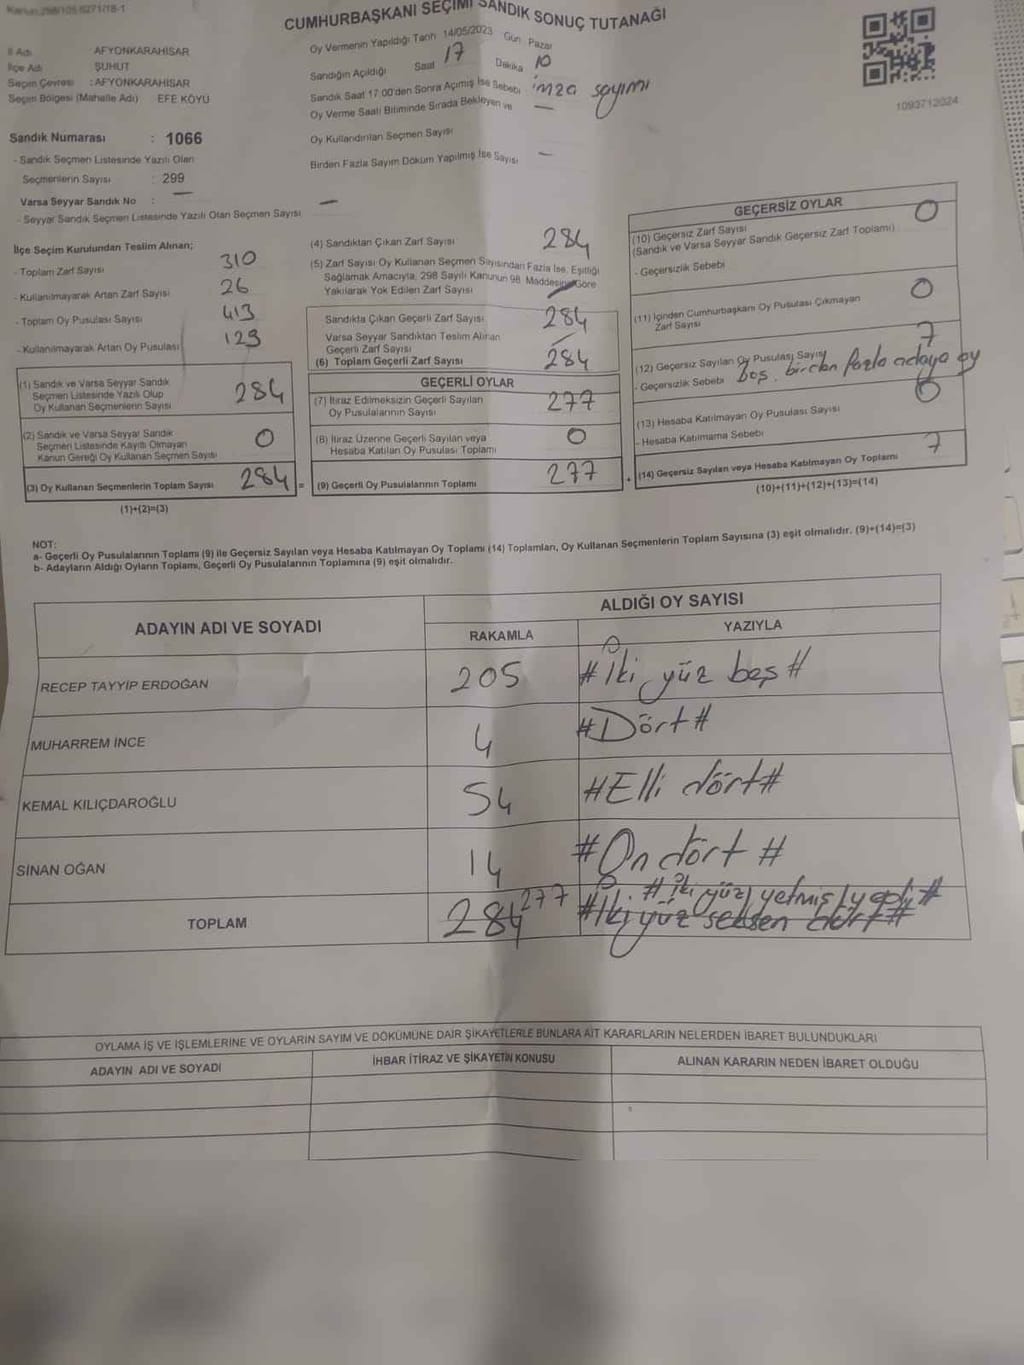 Kanun:298/105 6271/18-1
CUMHURBAŞKANI SEÇİMİ SANDIK SONUÇ TUTANAĞI
İl Adı AFYONKARAHİSAR
İlçe Adı ŞUHUT
Seçim Çevresi : AFYONKARAHİSAR
Seçim Bölgesi (Mahalle Adı) EFE KÖYÜ
Oy Vermenin Yapıldığı Tarih 14/05/2023 Gün Pazar
Sandığın Açıldığı Saat 17 Dakika 10
Sandık Saat 17:00'den Sonra Açılmış İse Sebebi imza sayımı
Oy Verme Saati Bitiminde Sırada Bekleyen ve
Oy Kullandırılan Seçmen Sayısı —
Birden Fazla Sayım Döküm Yapılmış İse Sayısı —
1093712024
Sandık Numarası : 1066
- Sandık Seçmen Listesinde Yazılı Olan
Seçmenlerin Sayısı : 299
Varsa Seyyar Sandık No : —
- Seyyar Sandık Seçmen Listesinde Yazılı Olan Seçmen Sayısı —
İlçe Seçim Kurulundan Teslim Alınan;
- Toplam Zarf Sayısı 310
- Kullanılmayarak Artan Zarf Sayısı 26
- Toplam Oy Pusulası Sayısı 413
- Kullanılmayarak Artan Oy Pusulası 129
(1) Sandık ve Varsa Seyyar Sandık
Seçmen Listesinde Yazılı Olup
Oy Kullanan Seçmenlerin Sayısı 284
(2) Sandık ve Varsa Seyyar Sandık
Seçmen Listesinde Kayıtlı Olmayan
Kanun Gereği Oy Kullanan Seçmen Sayısı 0
(3) Oy Kullanan Seçmenlerin Toplam Sayısı 284 =
(1)+(2)=(3)
(4) Sandıktan Çıkan Zarf Sayısı 284
(5) Zarf Sayısı Oy Kullanan Seçmen Sayısından Fazla İse, Eşitliği
Sağlamak Amacıyla, 298 Sayılı Kanunun 98. Maddesine Göre
Yakılarak Yok Edilen Zarf Sayısı
Sandıkta Çıkan Geçerli Zarf Sayısı 284
Varsa Seyyar Sandıktan Teslim Alınan
Geçerli Zarf Sayısı
(6) Toplam Geçerli Zarf Sayısı 284
GEÇERLİ OYLAR
(7) İtiraz Edilmeksizin Geçerli Sayılan
Oy Pusulalarının Sayısı 277
(8) İtiraz Üzerine Geçerli Sayılan veya
Hesaba Katılan Oy Pusulası Toplamı 0
(9) Geçerli Oy Pusulalarının Toplamı 277 +
GEÇERSİZ OYLAR
(10) Geçersiz Zarf Sayısı 0
(Sandık ve Varsa Seyyar Sandık Geçersiz Zarf Toplamı)
- Geçersizlik Sebebi
(11) İçinden Cumhurbaşkanı Oy Pusulası Çıkmayan
Zarf Sayısı 0
(12) Geçersiz Sayılan Oy Pusulası Sayısı 7
- Geçersizlik Sebebi boş, birden fazla adaya oy
(13) Hesaba Katılmayan Oy Pusulası Sayısı 0
- Hesaba Katılmama Sebebi
(14) Geçersiz Sayılan veya Hesaba Katılmayan Oy Toplamı 7
(10)+(11)+(12)+(13)=(14)
NOT:
a- Geçerli Oy Pusulalarının Toplamı (9) ile Geçersiz Sayılan veya Hesaba Katılmayan Oy Toplamı (14) Toplamları, Oy Kullanan Seçmenlerin Toplam Sayısına (3) eşit olmalıdır. (9)+(14)=(3)
b- Adayların Aldığı Oyların Toplamı, Geçerli Oy Pusulalarının Toplamına (9) eşit olmalıdır.
ADAYIN ADI VE SOYADI ALDIĞI OY SAYISI
RAKAMLA YAZIYLA
RECEP TAYYİP ERDOĞAN 205 #İki yüz beş#
MUHARREM İNCE 4 #Dört#
KEMAL KILIÇDAROĞLU 54 #Elli dört#
SİNAN OĞAN 14 #On dört#
277 #iki yüz yetmiş yedi#
TOPLAM 284 #İki yüz seksen dört#
OYLAMA İŞ VE İŞLEMLERİNE VE OYLARIN SAYIM VE DÖKÜMÜNE DAİR ŞİKAYETLERLE BUNLARA AİT KARARLARIN NELERDEN İBARET BULUNDUKLARI
ADAYIN ADI VE SOYADI İHBAR İTİRAZ VE ŞİKAYETİN KONUSU ALINAN KARARIN NEDEN İBARET OLDUĞU